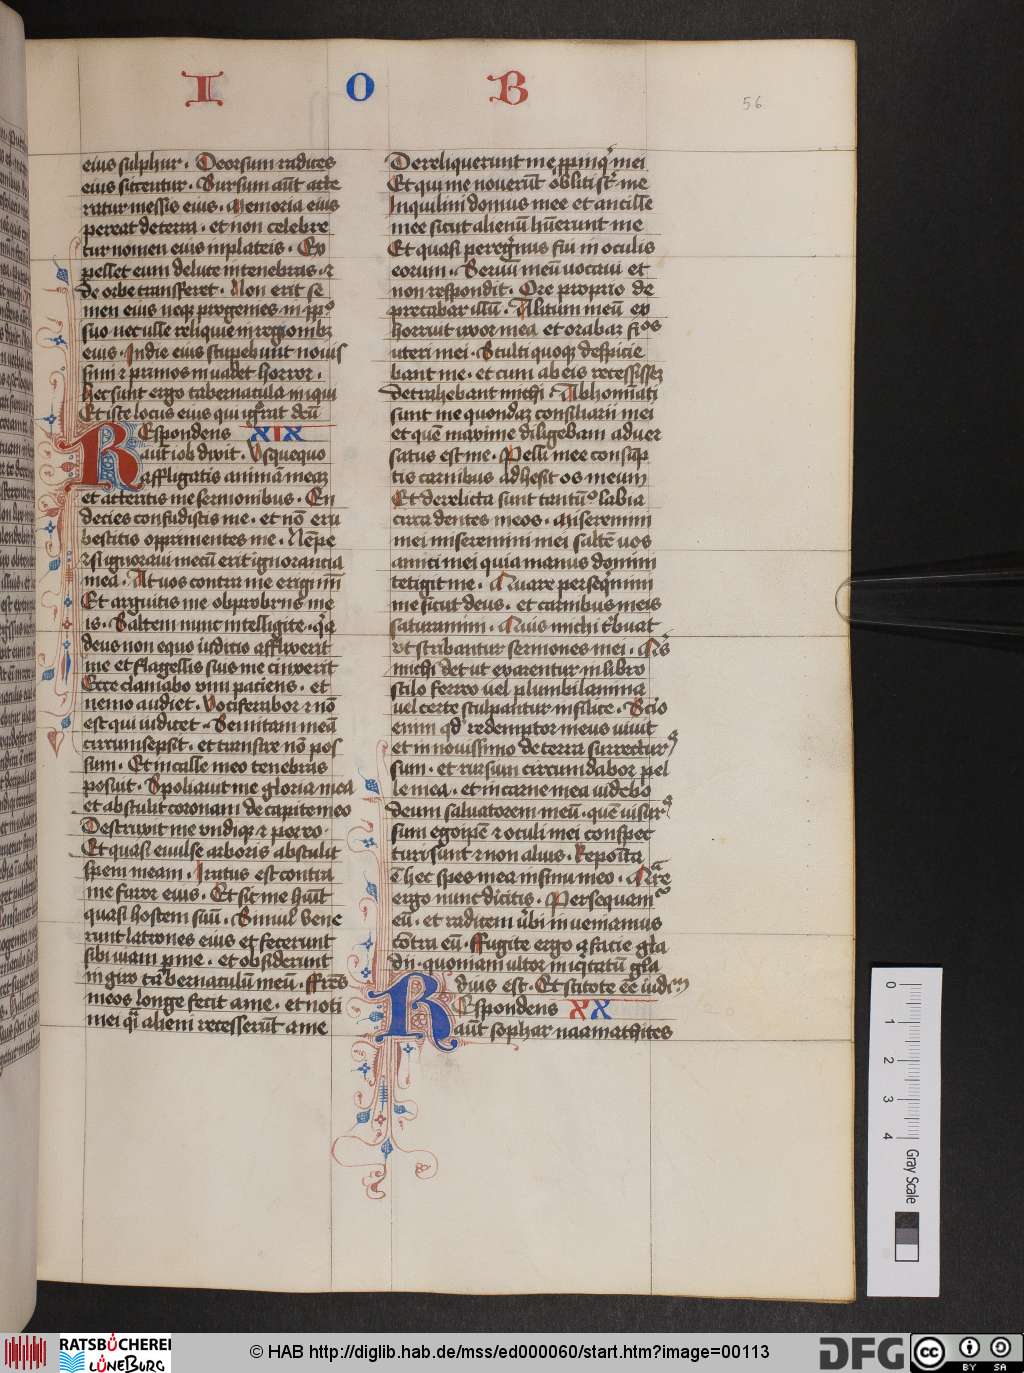 I O B
56
eius sulphur. Deorsum radices
eius siccentur. Sursum aūt atte
ratur messis eius. Memoria eius
pereat de terra. et non celebre
tur nomen eius in plateis. Ex
pellet eum de luce in tenebras. ⁊
de orbe transferet. Non erit se
men eius neqꝫ progenies in ppl̄o
suo nec ulle reliquie in regionibꝫ
eius. In die eius stupebunt novis
simi ⁊ primos invadet horror.
hec sunt ergo tabernacula iniqui
Et iste locus eius qui iḡrat deū
Respondens XIX
aut̄ iob dixit. Usquequo
affligitis animā meaꝫ
et atteritis me sermonibus. En
decies confudistis me. et nō eru
bescitis opprimentes me. Nēpe
⁊ si ignoravi mecū erit ignorancia
mea. At vos contra me erigimī
Et arguitis me obprobriis me
is. Saltem nunc intelligite. qa
deus non equo iudicio afflixerit
me et flagellis suis me cinxerit
Ecce clamabo vim paciens. et
nemo audiet. Vociferabor ⁊ nō
est qui iudicet. Semitam meā
circumsepsit. et transire nō pos
sum. Et in calle meo tenebras
posuit. Spoliavit me gloria mea
et abstulit coronam de capite meo
Destruxit me undiqꝫ ⁊ pereo.
Et quasi evulse arboris abstulit
spem meam. Iratus est contra
me furor eius. Et sic me habuit
quasi hostem suū. Simul vene
runt latrones eius et fecerunt
sibi viam per me. et obsiderunt
in giro tabernaculū meū. ffrēs
meos longe fecit a me. et noti
mei qͣsi alieni recesserūt a me
Dereliquerunt me ppinqͥ mei
Et qui me noverūt obliti sūt me
Inquilini domus mee et ancille
mee sicut alienū habuerunt me
Et quasi peregrinus fui in oculis
eorum. Servū meū vocavi et
non respondit. Ore proprio de
precabar illū. Alitum meū ex
horruit uxor mea et orabar fi os
uteri mei. Stulti quoqꝫ despicie
bant me. et cum ab eis recessisseꝫ
detrahebant michi. Abhominati
sunt me quondaꝫ consiliarii mei
et quē maxime diligebam adver
satus est me. Pelli mee consūp
tis carnibus adhesit os meum
Et derelicta sunt tantū labia
circa dentes meos. Miseremini
mei miseremini mei saltē vos
amici mei quia manus domini
tetigit me. Quare persequimini
me sicut deus. et carnibus meis
saturamini. Quis michi tͥbuat
ut scribantur sermones mei. Quis
michi det ut exarentur in libro
stilo ferreo vel plumbi lamina
vel certe sculpantur in silice. Scio
enim qd redemptor meus vivit
et in novissimo de terra surrectur9
sum. et rursum circumdabor pel
le mea. et in carne mea videbo
deum salvatorem meū. quē visur9
sum ego ipē ⁊ oculi mei conspec
turi sunt ⁊ non alius. Reposita
ē hec spes mea in sinu meo. Quare
ergo nunc dicitis. Persequamur
eū. et radicem ūbi inveniamus
cōtra eū. ffugite ergo a facie gla
dii. quoniam ultor iniqͥtatū gla
dius est. Et scitote eē iudicm
Respondens XX
aut̄ sophar naamathites
0 1 2 3 4
Gray Scale
RATSBÜCHEREI LÜNEBURG
© HAB http://diglib.hab.de/mss/ed000060/start.htm?image=00113
DFG
cc BY SA